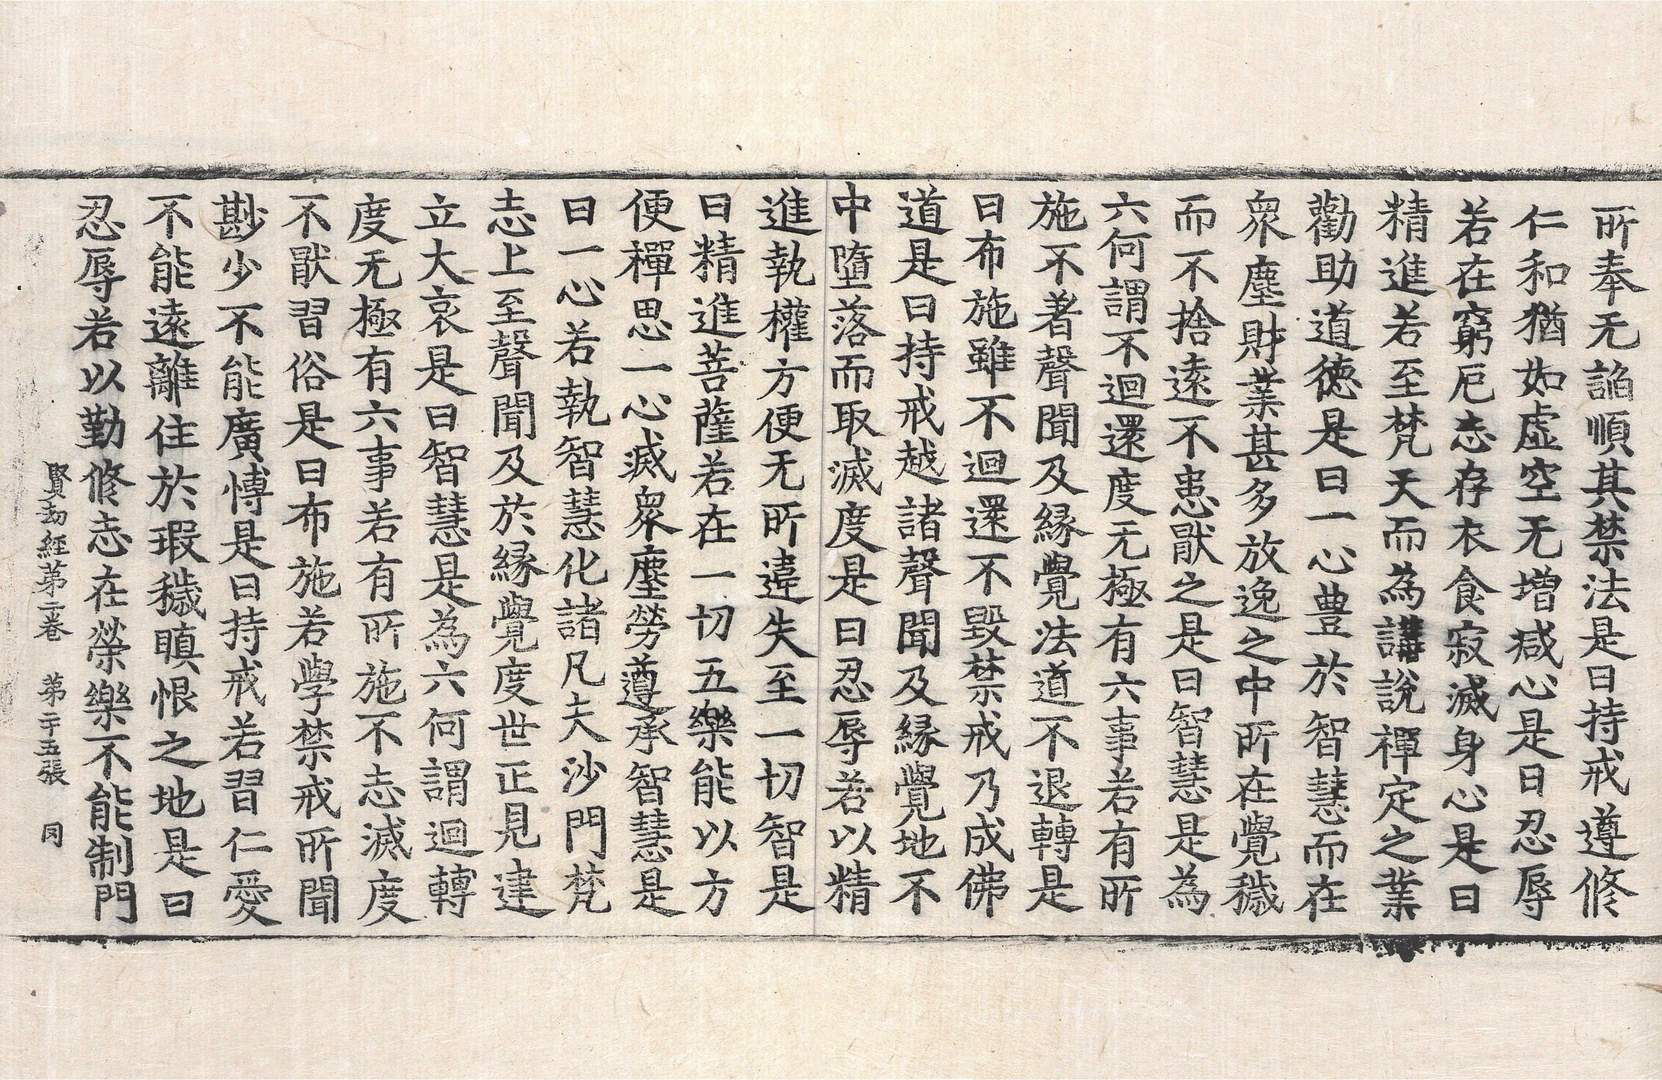 所奉无諂順其禁法是曰持戒遵修
仁和猶如虛空无增減心是曰忍辱
若在窮厄志存衣食寂滅身心是曰
精進若至梵天而為講說禪定之業
勸助道德是曰一心豊於智慧而在
衆塵財業甚多放逸之中所在覺穢
而不捨遠不患猒之是曰智慧是為
六何謂不迴還度无極有六事若有所
施不著聲聞及縁覺法道不退轉是
曰布施雖不迴還不毀禁戒乃成佛
道是曰持戒越諸聲聞及縁覺地不
中墮落而取滅度是曰忍辱若以精
進執權方便无所違失至一切智是
曰精進菩薩若在一切五樂能以方
便禪思一心滅衆塵勞遵承智慧是
曰一心若執智慧化諸凡夫沙門梵
志上至聲聞及於縁覺度世正見建
立大哀是曰智慧是為六何謂迴轉
度无極有六事若有所施不志滅度
不猒習俗是曰布施若學禁戒所聞
尠少不能廣愽是曰持戒若習仁愛
不能遠離住於瑕穢瞋恨之地是曰
忍辱若以勤修志在榮樂不能制門
賢劫經第二卷　第二十五張　同